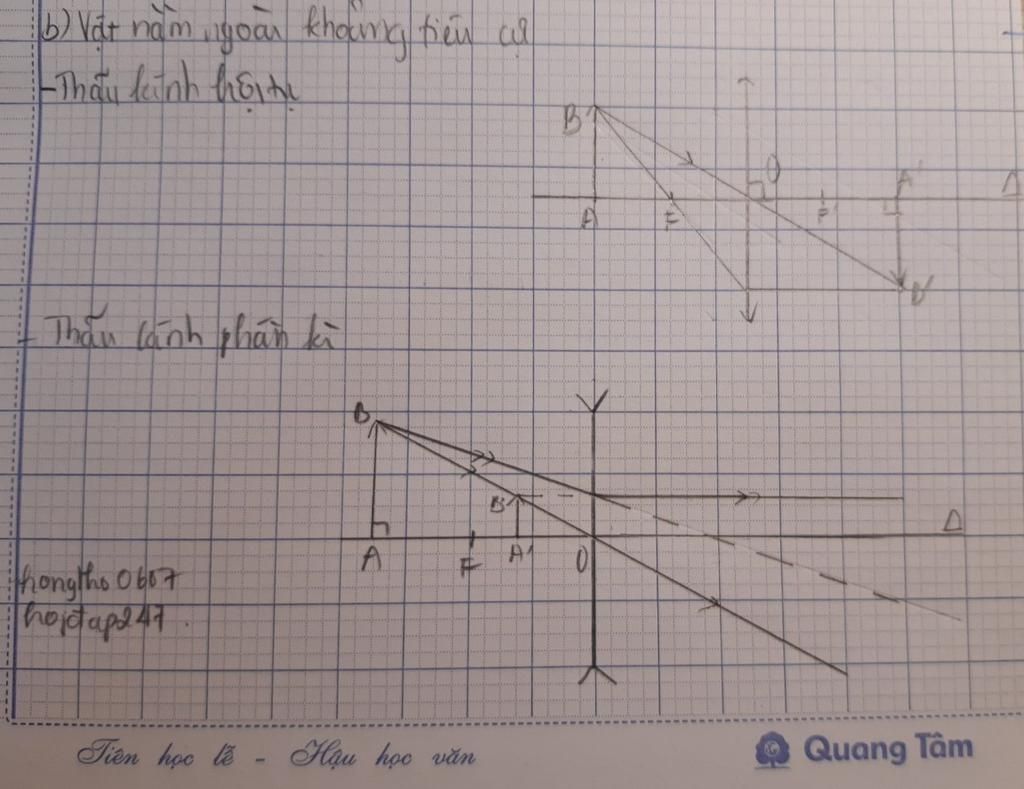 b) Vật nằm ngoài khoảng tiêu cự
- Thấu kính hội tụ
B
O
A'
Δ
A
F
F'
B'
- Thấu kính phân kì
B
B'
Δ
A
F
A'
O
hongtho0607
hoctap247.
Tiên học lễ - Hậu học văn
Quang Tâm